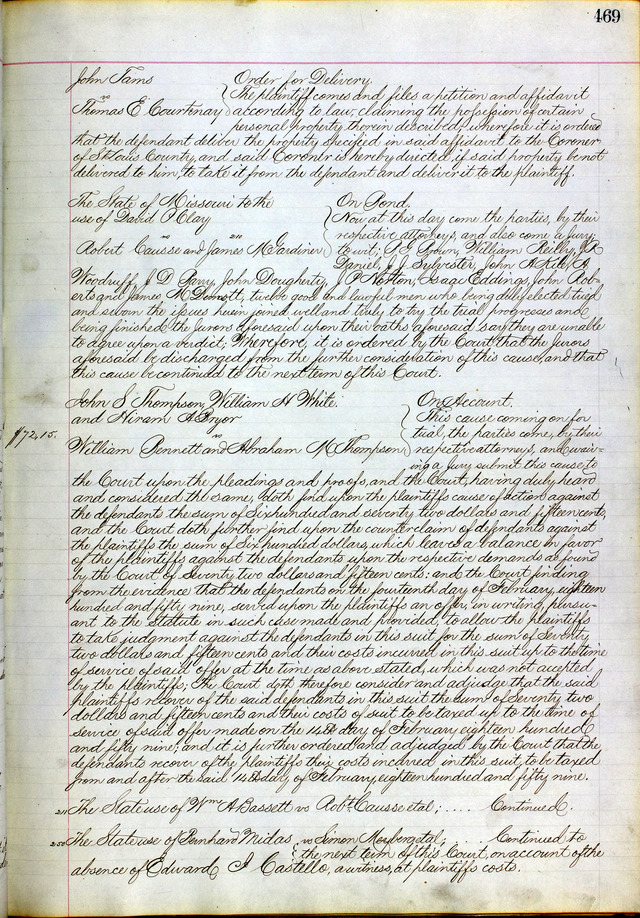 469
John Tams
vs
Thomas E Courtenay
Order for Delivery.
The plaintiff comes and files a petition and affidavit
according to law, claiming the possession of certain
personal property therein described; wherefore it is ordered
that the defendant deliver the property specified in said affidavit to the Coroner
of St Louis County, and said Coroner is hereby directed, if said property be not
delivered to him, to take it from the defendant and deliver it to the plaintiff.
The State of Missouri to the
use of David P Clay
vs
Robert Causse and James M Gardiner
On Bond.
Now at this day come the parties, by their
respective attorneys, and also come a jury
to wit; Brown, William Reilly,
Daniel, J J Sylvester, John A Kile,
Woodruff, J D Parry, John Dougherty, J P Norton, Isage Eddings, John Rob-
erts and James McDonott, twelve good and lawful men who being duly elected tried
and sworn the issues herein joined well and truly to try the trial progresses and
being finished, the jurors aforesaid upon their oaths aforesaid say they are unable
to agree upon a verdict; Wherefore, it is ordered by the Court that the jurors
aforesaid be discharged from the further consideration of this cause, and that
this cause be continued to the next term of this Court.
John S Thompson, William H White.
and Hiram A Pryor
vs
William Bennett and Abraham M Thompson
$72,15.
On Account.
This cause coming on for
trial, the parties come, by their
respective attorneys, and waiv-
ing a jury submit this cause to
the Court upon the pleadings and proofs, and the Court, having duly heard
and considered the same, doth find upon the plaintiffs cause of action against
the defendants the sum of Six hundred and seventy two dollars and fifteen cents,
and the Court doth further find upon the counterclaim of defendants against
the plaintiffs the sum of Six hundred dollars, which leaves a balance in favor
of the plaintiffs against the defendants upon the respective demands as found
by the Court, of Seventy two dollars and fifteen cents; and the Court finding
from the evidence that the defendants on the fourteenth day of February, eighteen
hundred and fifty nine, served upon the plaintiffs an offer, in writing, pursu-
ant to the Statute in such case made and provided, to allow the plaintiffs
to take judgment against the defendants in this suit for the sum of Seventy
two dollars and fifteen cents and their costs incurred in this suit up to the time
of service of said offer at the time as above stated, which was not accepted
by the plaintiffs; The Court doth therefore consider and adjudge that the said
plaintiffs recover of the said defendants in this suit the sum of Seventy two
dollars and fifteen cents and their costs of suit to be taxed up to the time of
service of said offer made on the 14th day of February eighteen hundred
and fifty nine; and it is further ordered and adjudged by the Court that the
defendants recover of the plaintiffs their costs incurred in this suit, to be taxed
from and after the said 14th day of February, eighteen hundred and fifty nine.
The State use of Wm A Bassett vs Robt Causse et al; .... Continued.
The State use of Bernhard Midas vs Simon et al; .... Continued to
the next term of this Court, on account of the
absence of Edward J Castello, a witness, at plaintiffs costs.